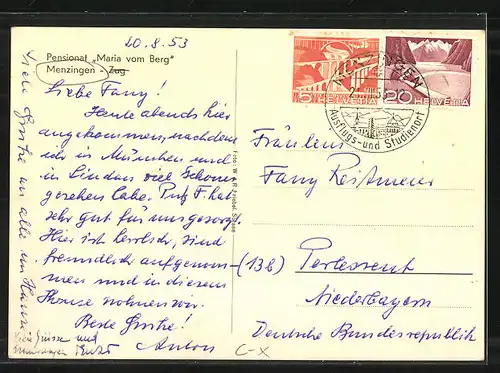 20.8.53
Pensionat "Maria vom Berg"
Menzingen - Zug
Liebe Fany!
Heute abends hier
angekommen, nachdem
ich in München und
in Lindau viel Schönes
gesehen habe. F. hat
sehr gut für uns gesorgt.
Hier ist herrlich, sind
freundlich aufgenom-
men und in diesem
Hause wohnen wir.
Beste Grüße!
Anton
Viele Grüße an alle im Hause
Viele Grüsse und
HELVETIA
5
HELVETIA
20
Ausflugs- und Studienort
Fräulein
Fany Reitmeier
(13b)
Niederbayern
Deutsche Bundesrepublik
C-X